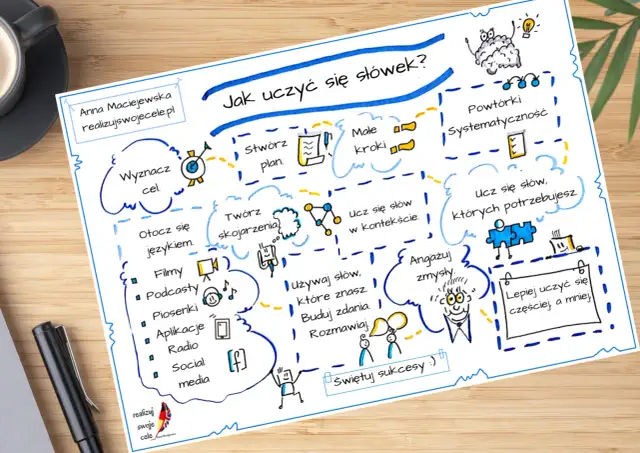 Anna Maciejewska
realizujswojecele.pl
Jak uczyć się słówek?
Wyznacz
cel
Stwórz
plan
Małe
kroki
Powtórki
Systematyczność
Otocz się
językiem
Filmy
Podcasty
Piosenki
Aplikacje
Radio
Social
media
Twórz
skojarzenia
Ucz się słów
w kontekście
Ucz się słów,
których potrzebujesz
Używaj słów,
które znasz.
Buduj zdania.
Rozmawiaj
Angażuj
zmysły
Lepiej uczyć się
częściej, a mniej
Świętuj sukcesy :)
realizuj
swoje
cele